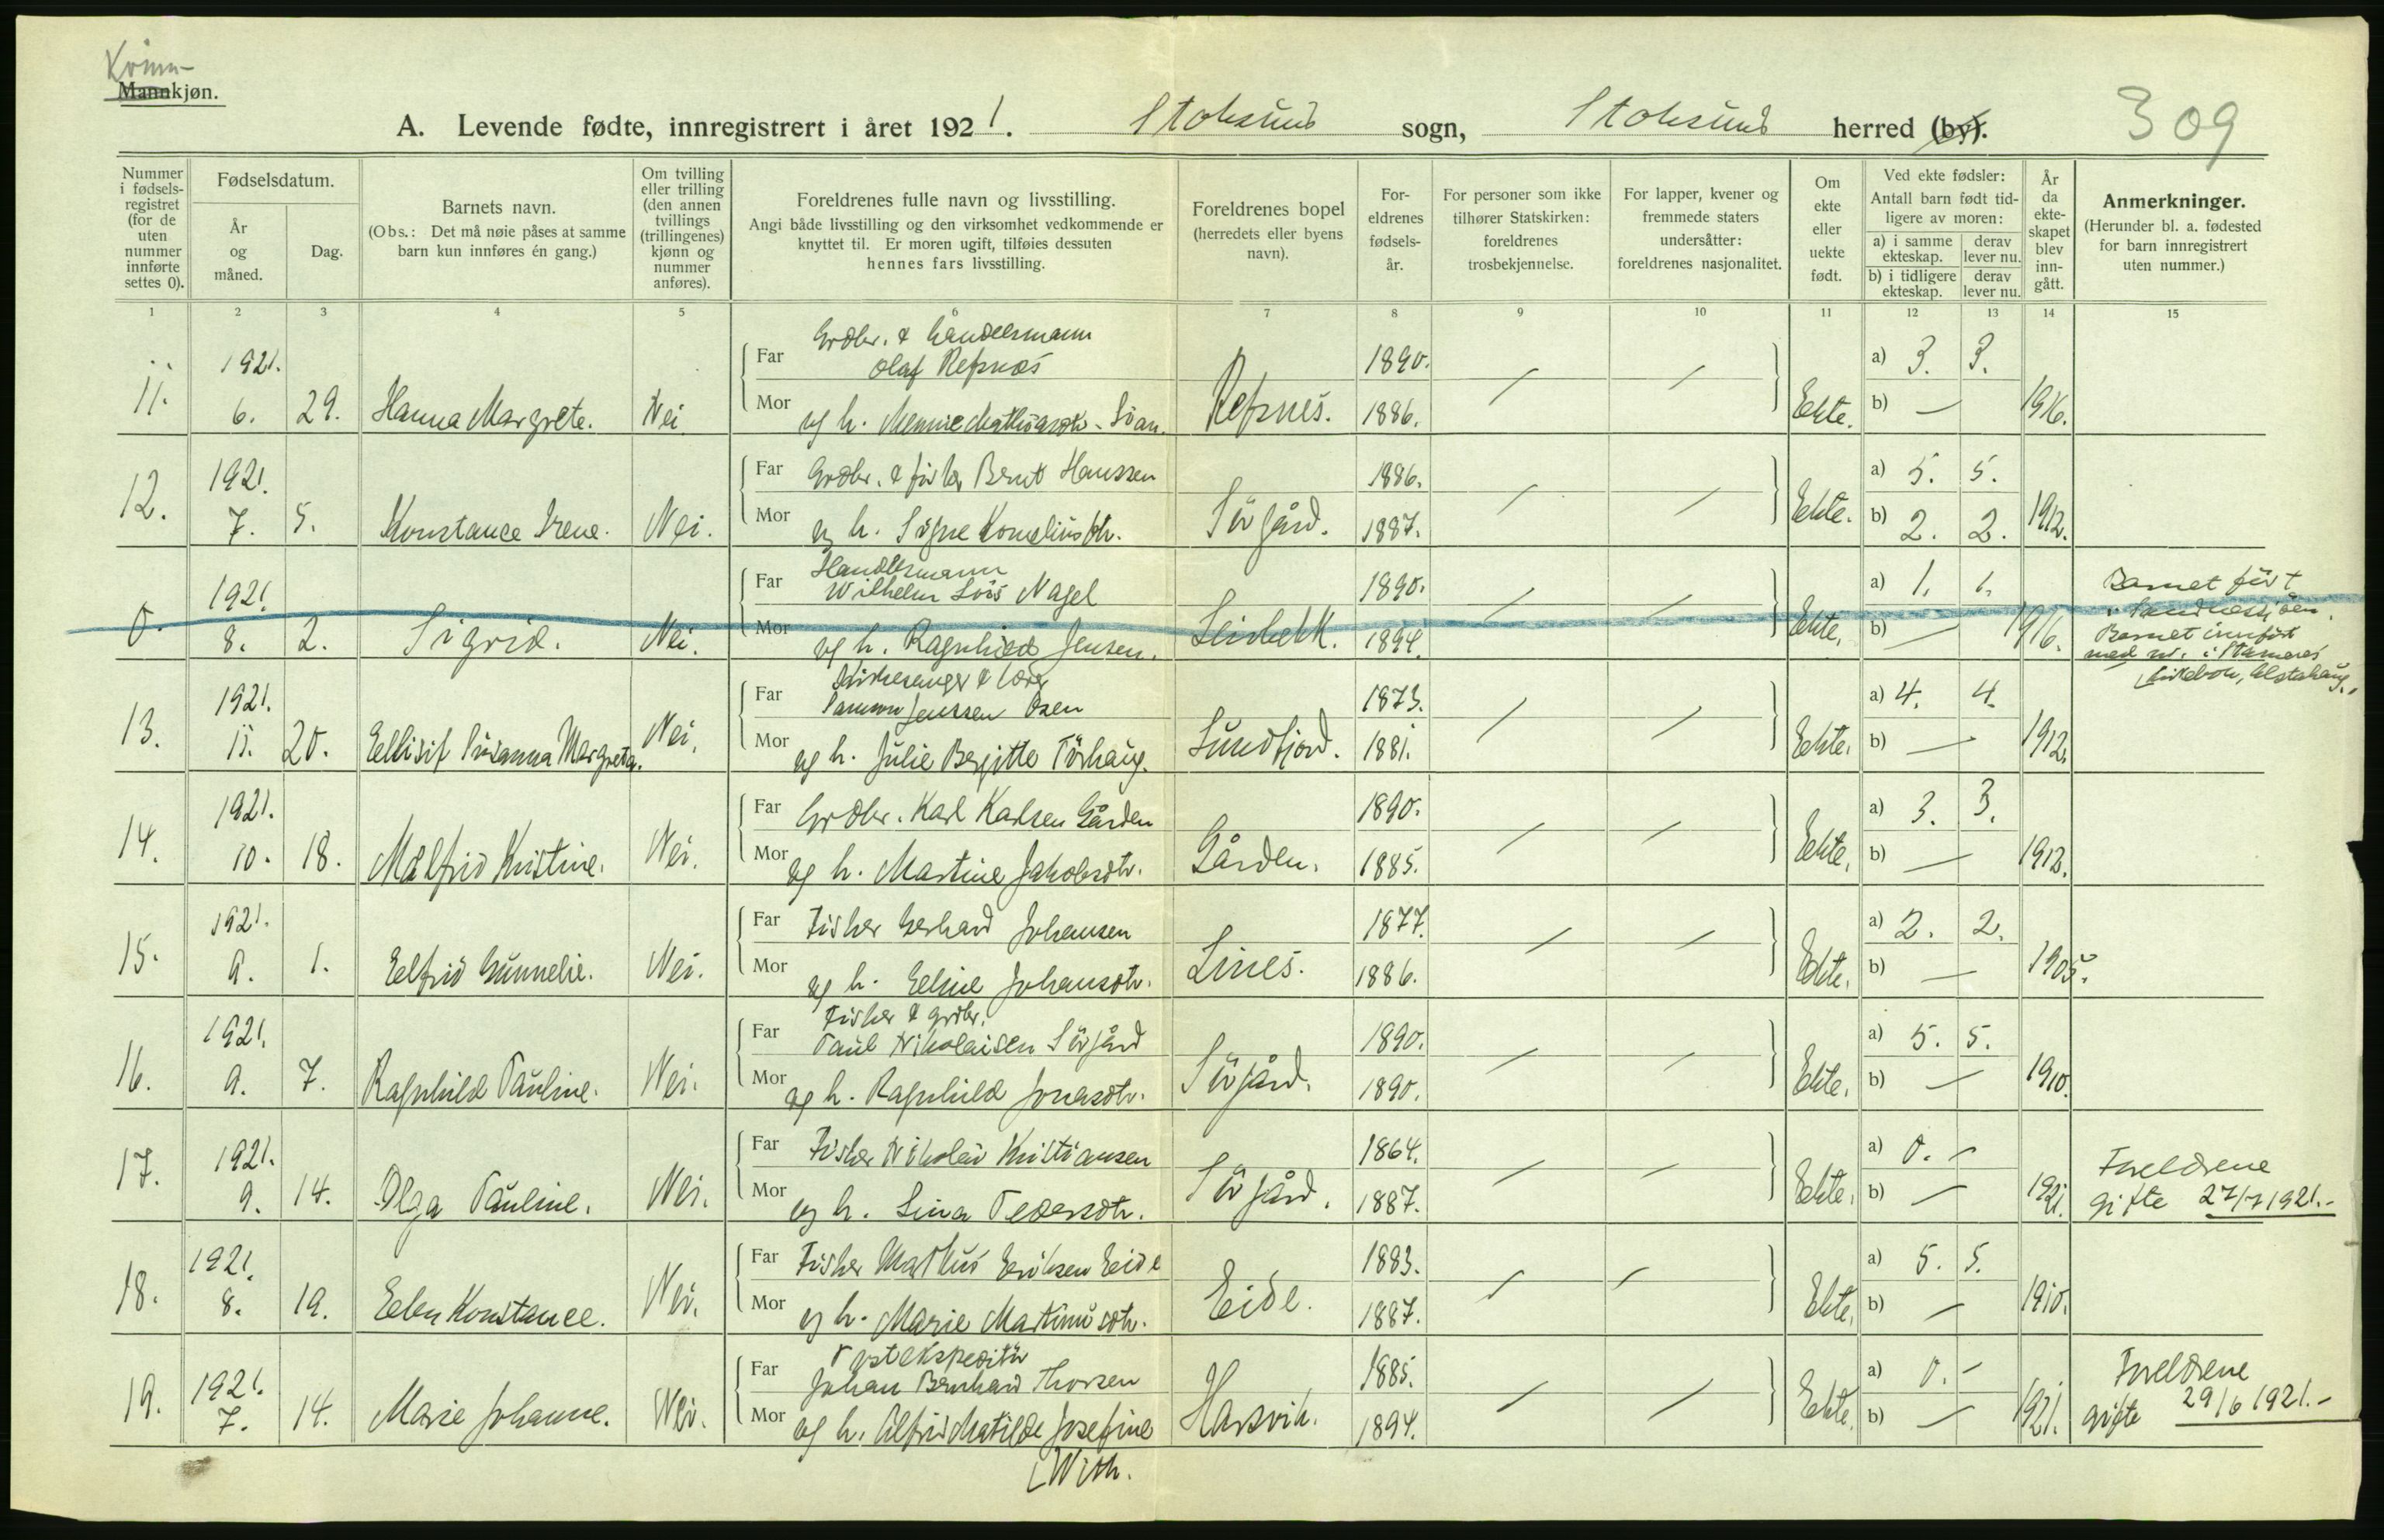 Kvinn-
Mannkjøn.
A. Levende fødte, innregistrert i året 1921. Stoksund sogn, Stoksund herred (by).
309
Nummer i fødsels-registret (for de uten nummer innførte settes 0).
Fødselsdatum.
År og måned.
Dag.
Barnets navn.
(Obs.: Det må nøie påses at samme barn kun innføres én gang.)
Om tvilling eller trilling (den annen tvillings (trillingenes) kjønn og nummer anføres).
Foreldrenes fulle navn og livsstilling.
Angi både livsstilling og den virksomhet vedkommende er knyttet til. Er moren ugift, tilføies dessuten hennes fars livsstilling.
Foreldrenes bopel (herredets eller byens navn).
For-eldrenes fødsels-år.
For personer som ikke tilhører Statskirken: foreldrenes trosbekjennelse.
For lapper, kvener og fremmede staters undersåtter: foreldrenes nasjonalitet.
Om ekte eller uekte født.
Ved ekte fødsler:
Antall barn født tid-ligere av moren:
a) i samme ekteskap.
derav lever nu.
b) i tidligere ekteskap.
derav lever nu.
År da ekte-skapet blev inn-gått.
Anmerkninger.
(Herunder bl. a. fødested for barn innregistrert uten nummer.)
1 2 3 4 5 6 7 8 9 10 11 12 13 14 15
Grdbr. & handelsmann
1921. Far Olaf Refsnes 1890. a) 3. 3.
11. 6. 29. Hanna Margrete. Nei Mor og h. Mennie Refsnes. 1886. Ekte. b) — 1916.
1921. Far Grdbr. & fisker Bernt Hanssen 1886. a) 5. 5.
12. 7. 5. Konstance Irene. Nei. Mor og h. Signe Korneliusdtr. Sörgård. 1887. Ekte. b) 2. 2. 1912.
Handelsmann
1921. Far Wilhelm Nagel 1890. a) 1. 1. Barnet född
i Sandnessjöen.
0. 8. 2. Sigrid. Nei. Mor og h. Ragnhild Jensen. 1894. Ekte. b) — 1916. Barnet innfört
med nr. i Stamnes
kirkebok, Alstahaug.
Kirkesanger & lærer
1921. Far Jenssen Osen 1873. a) 4. 4.
13. 11. 20. Ellisif Susanna Margreta. Nei. Mor og h. Julie Bergitte Törhaug. Sundfjord. 1881. Ekte. b) — 1912.
1921. Far Grdbr. Karl Karlsen Gården 1890. a) 3. 3.
14. 10. 18. Målfrid Kristine. Nei. Mor og h. Martine Jakobsdtr. Gården. 1885. Ekte. b) — 1912.
1921. Far Fisker Gerhard Johansen 1877. a) 2. 2.
15. 9. 1. Elfrid Gunnelie. Nei. Mor og h. Eline Johansdtr. Lines. 1886. Ekte. b) — 1905.
Fisker & grdbr.
1921. Far Paul Nikolaisen Sörgård 1890. a) 5. 5.
16. 9. 7. Ragnhild Pauline. Nei. Mor og h. Ragnhild Jonasdtr. Sörgård. 1890. Ekte. b) — 1910.
1921. Far Fisker Nikolai Kristiansen 1864. a) 0. - Foreldrene
17. 9. 14. Olga Pauline. Nei. Mor og h. Lina Pedersdtr. Sörgård. 1887. Ekte. b) — 1921. gifte 27/7 1921.-
1921. Far Fisker Markus Eriksen Eide 1883. a) 5. 5.
18. 8. 19. Ellen Konstance. Nei. Mor og h. Marie Martinusdtr. Eide. 1887. Ekte. b) — 1910.
Postekspeditör
1921. Far Johan Bernhard Thorsen 1885. a) 0. - Foreldrene
19. 7. 14. Marie Johanne. Nei. Mor og h. Alfrid Matilde Josefine Harsvik. 1894. Ekte. b) — 1921. gifte 29/6 1921.-